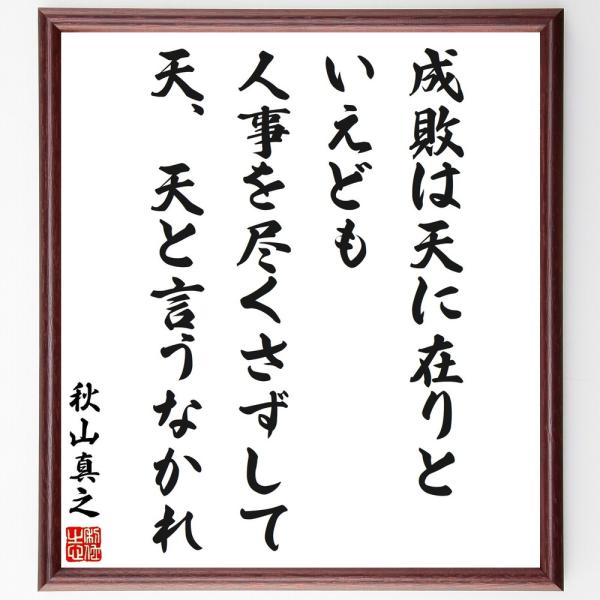 成敗は天に在りと
いえども
人事を尽くさずして
天、天と言うなかれ
秋山真之